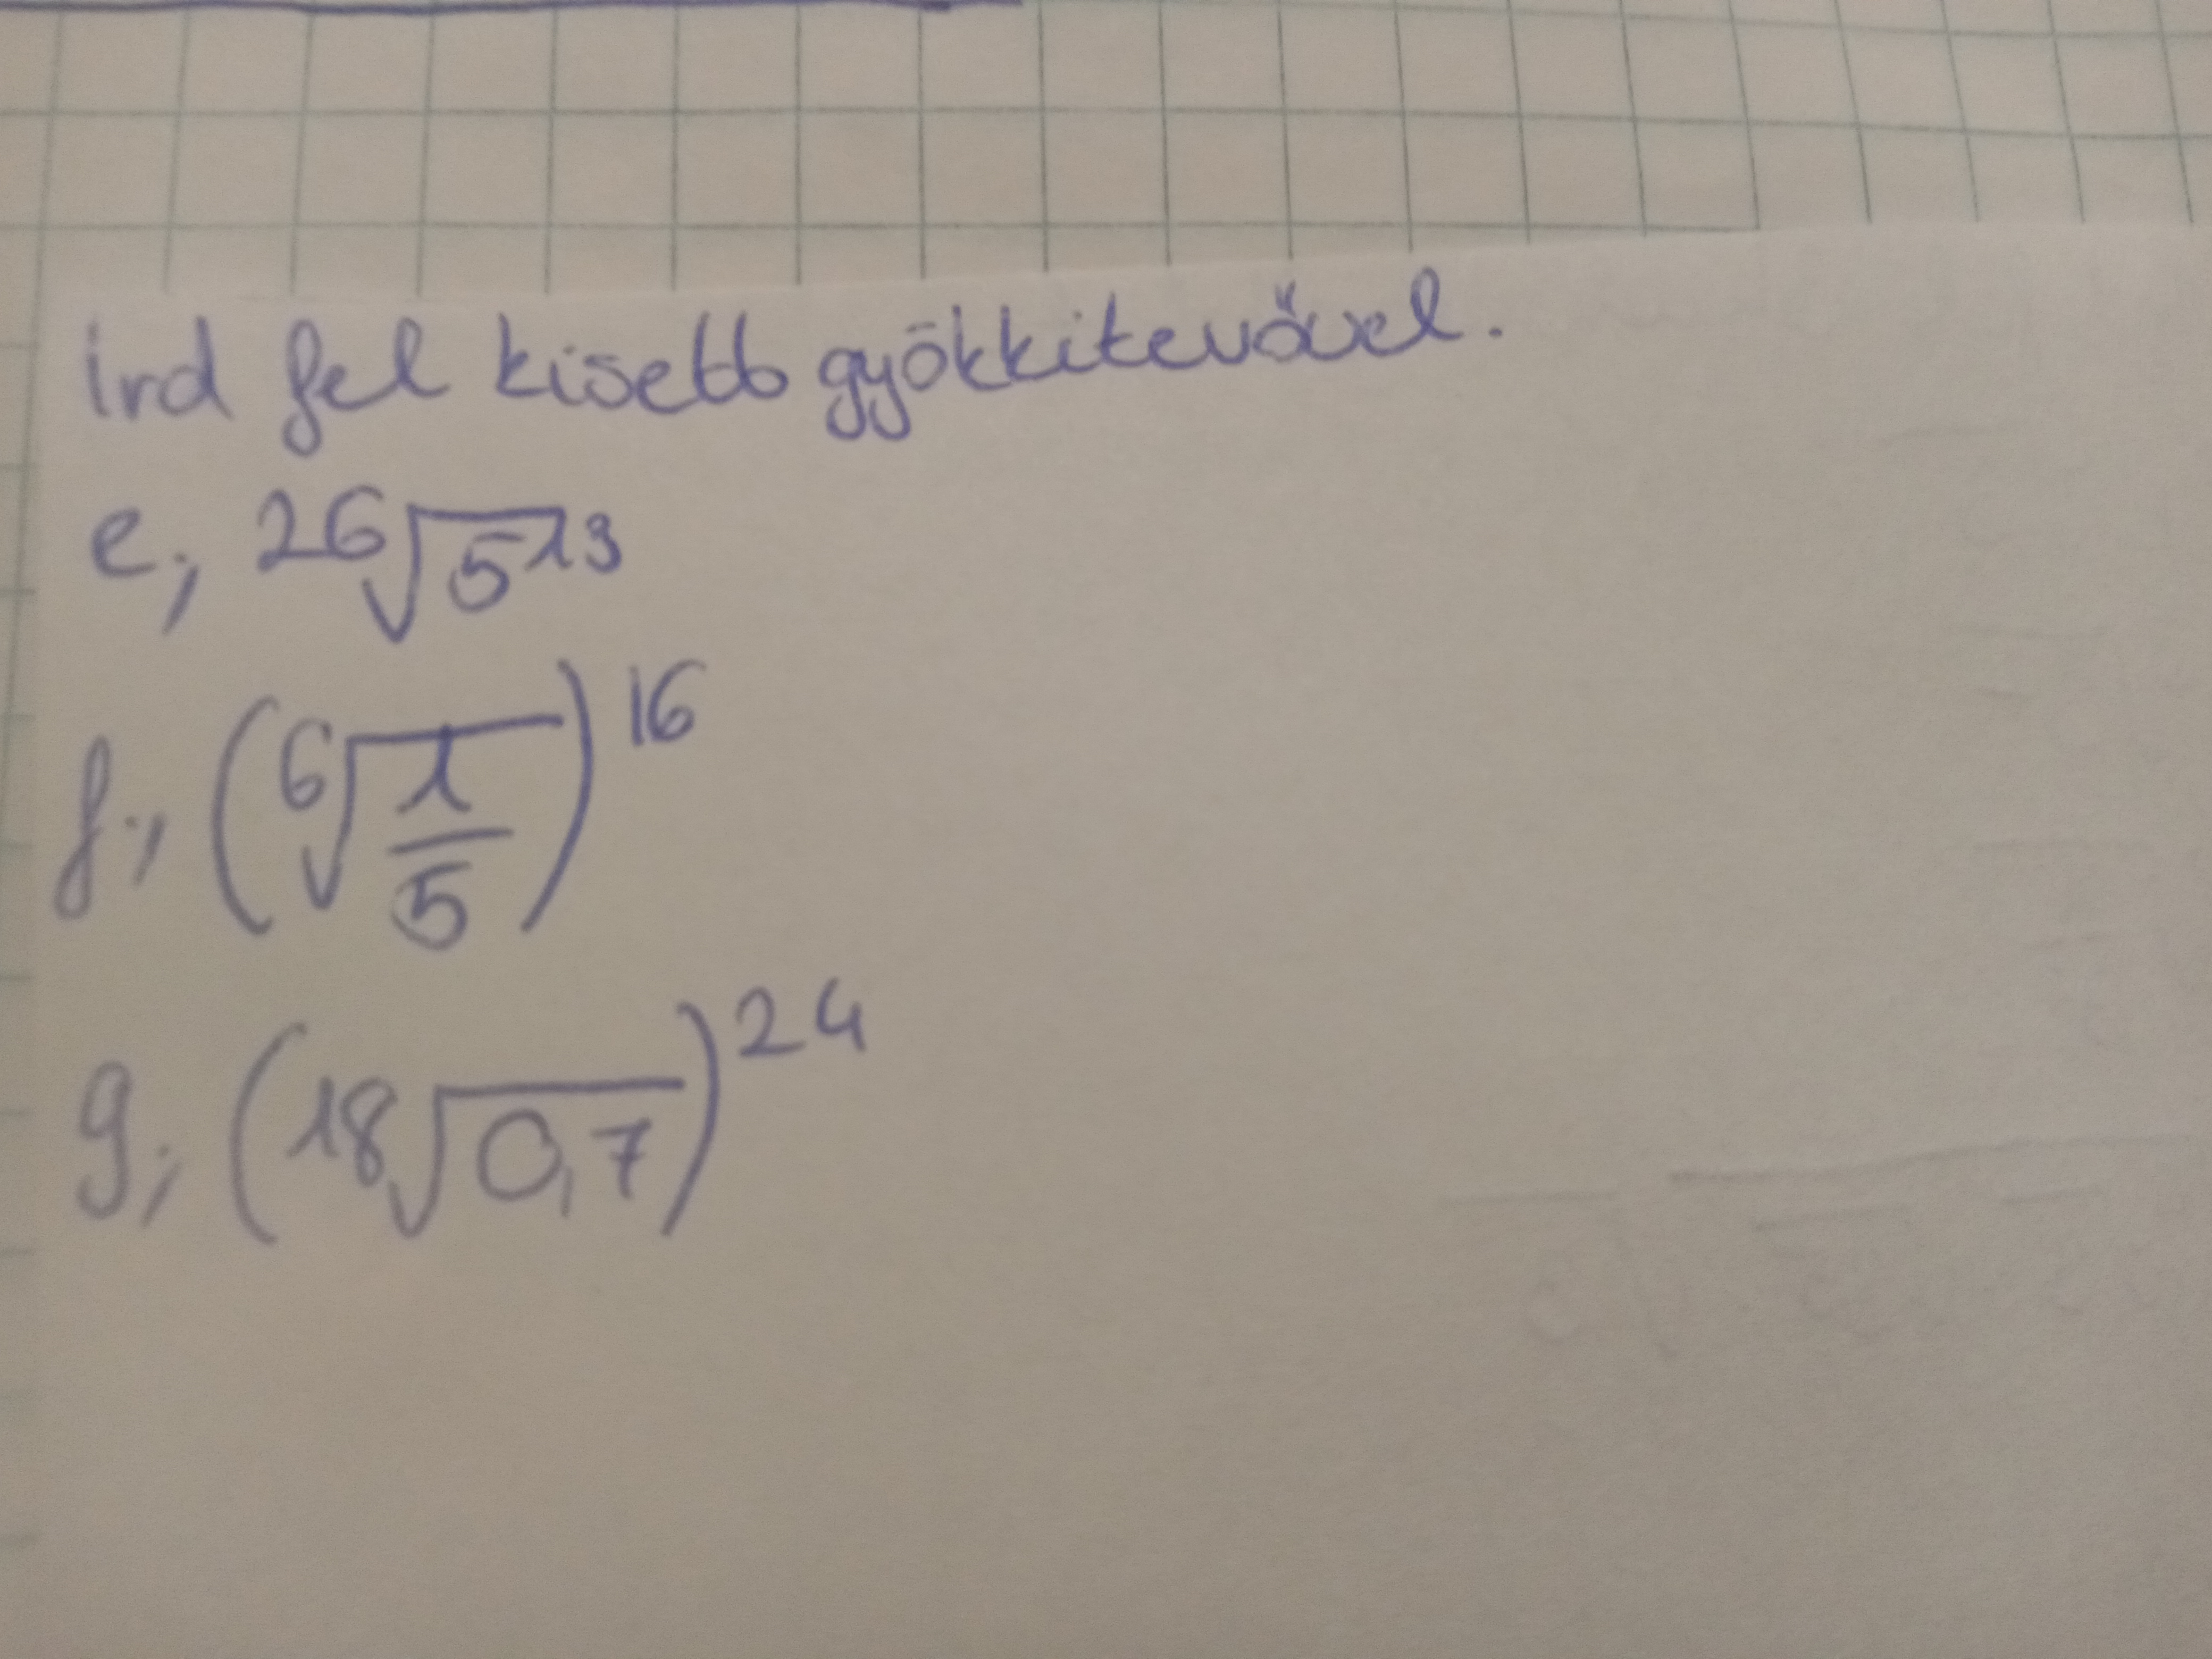 Írd fel kisebb gyökkitevővel.
e, ²⁶√5¹³
f, (⁶√(1/5))¹⁶
g, (¹⁸√0,7)²⁴